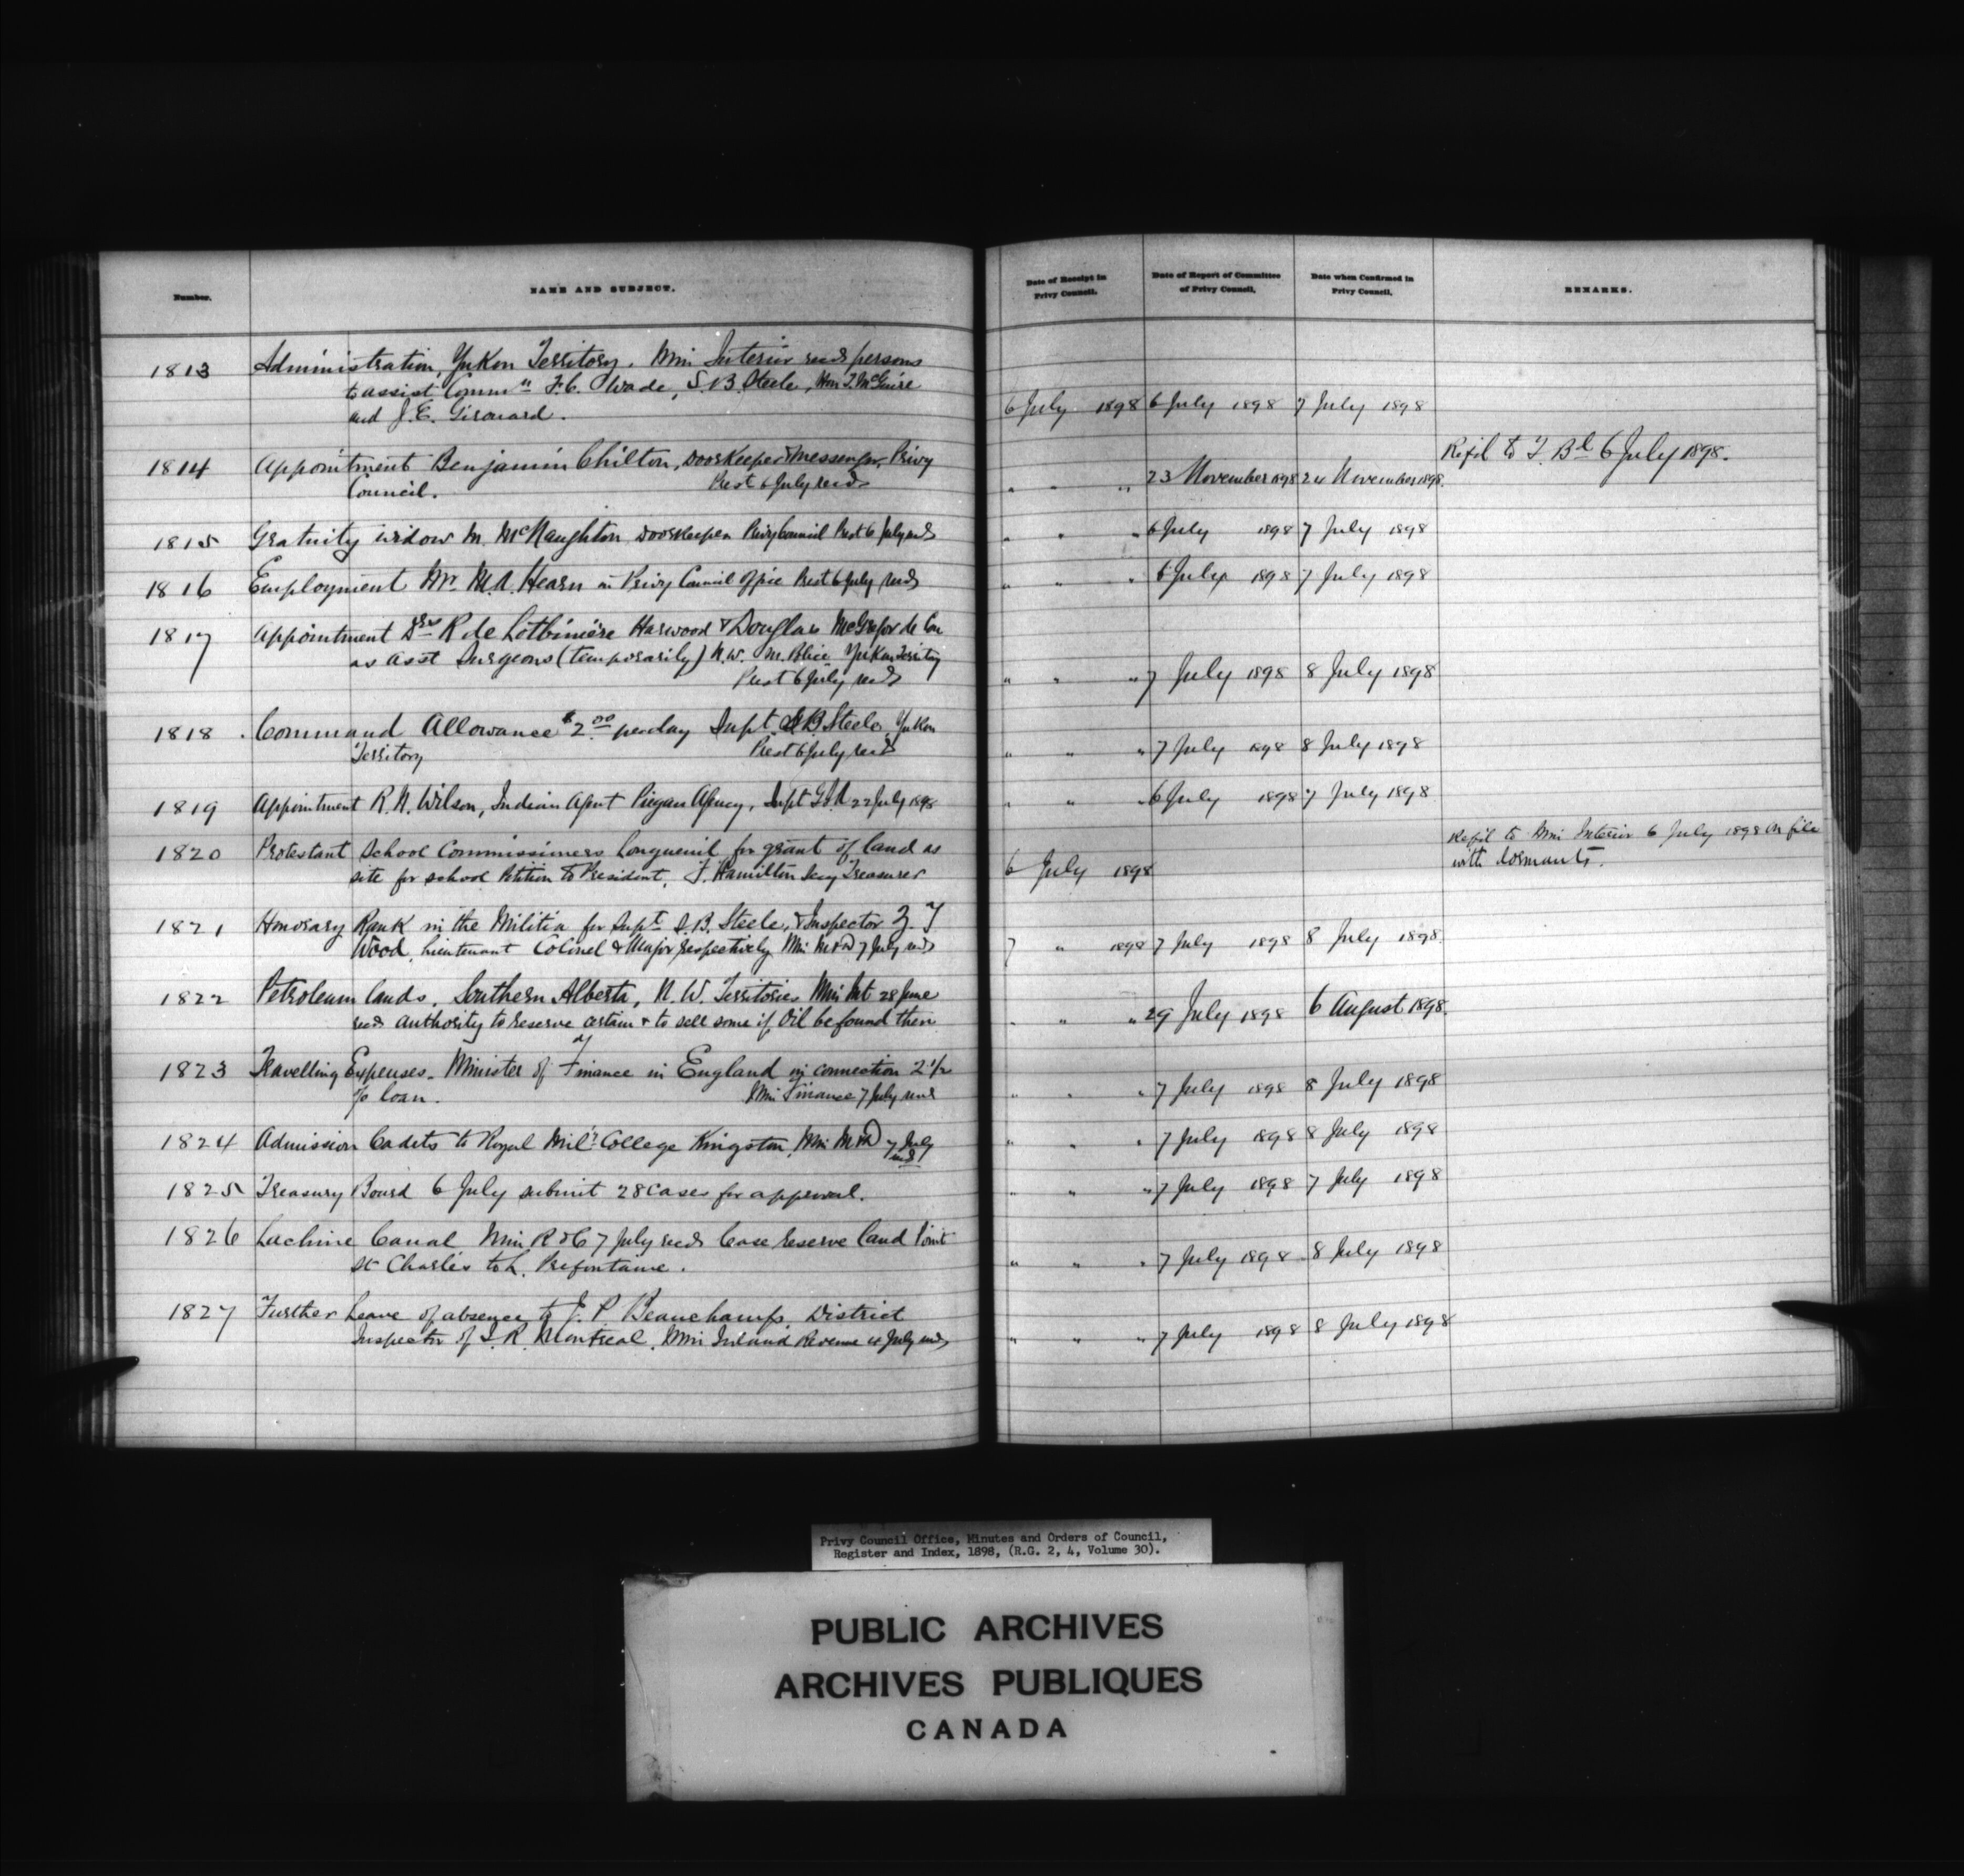 Number.
NAME AND SUBJECT.
Date of Receipt in Privy Council.
Date of Report of Committee of Privy Council.
Date when Confirmed in Privy Council.
REMARKS.
1813 Administration, Yukon Territory. Min Interior recds persons
to assist Commrs F.C. Wade, S.B. Steele, Hon T. McGuire
and J.E. Girouard. 6 July 1898 6 July 1898 7 July 1898
1814 Appointment Benjamin Chilton, Doorkeeper & Messenger, Privy Refd to T. Bd 6 July 1898.
Council. Prest 6 July recds " " " 23 November 1898 24 November 1898.
1815 Gratuity widow M. McNaughton Doorkeeper Privy Council Prest 6 July recds " " " 6 July 1898 7 July 1898
1816 Employment Mr M.A. Hearn in Privy Council Office Prest 6 July recds " " " 6 July 1898 7 July 1898
1817 Appointment Drs R de Lotbinière Harwood & Douglas McGregor de
as Asst Surgeons (temporarily) N.W. M. Police Yukon Territory
Prest 6 July recds " " " 7 July 1898 8 July 1898
1818 Command Allowance $2.00 per day Supt S.B. Steele, Yukon
Territory Prest 6 July recds " " " 7 July 1898 8 July 1898
1819 Appointment R.N. Wilson, Indian Agent Piegan Agency, Supt G I A 22 July 1898 " " " 6 July 1898 7 July 1898
1820 Protestant School Commissioners Longueuil for grant of land as Refd to Min Interior 6 July 1898 on file
site for school Petition to President, F. Hamilton Secy Treasurer 6 July 1898 with dormants.
1821 Honorary Rank in the Militia for Supt S.B. Steele, & Inspector Z. T
Wood, Lieutenant Colonel & Major respectively Min M&D 7 July recds 7 " 1898 7 July 1898 8 July 1898.
1822 Petroleum lands, Southern Alberta, N.W. Territories Min Int 28 June
recds authority to reserve certain & to sell some if Oil be found then " " " 29 July 1898 6 August 1898.
1823 Travelling Expenses - Minister of Finance in England in connection 2 1/2
% loan. Min Finance 7 July recds " " " 7 July 1898 8 July 1898
1824 Admission Cadets to Royal Mily College Kingston, Min M&D 7 July recds " " " 7 July 1898 8 July 1898
1825 Treasury Board 6 July submit 28 Cases for approval. " " " 7 July 1898 7 July 1898
1826 Lachine Canal Min R & C 7 July recds lease reserve land Point
St Charles to L. Prefontaine. " " " 7 July 1898 8 July 1898
1827 Further Leave of absence to J.P. Beauchamp, District
Inspector of I.R. Montreal. Min Inland Revenue 4 July recds " " " 7 July 1898 8 July 1898
Privy Council Office, Minutes and Orders of Council,
Register and Index, 1898, (R.G. 2, 4, Volume 30).
PUBLIC ARCHIVES
ARCHIVES PUBLIQUES
CANADA